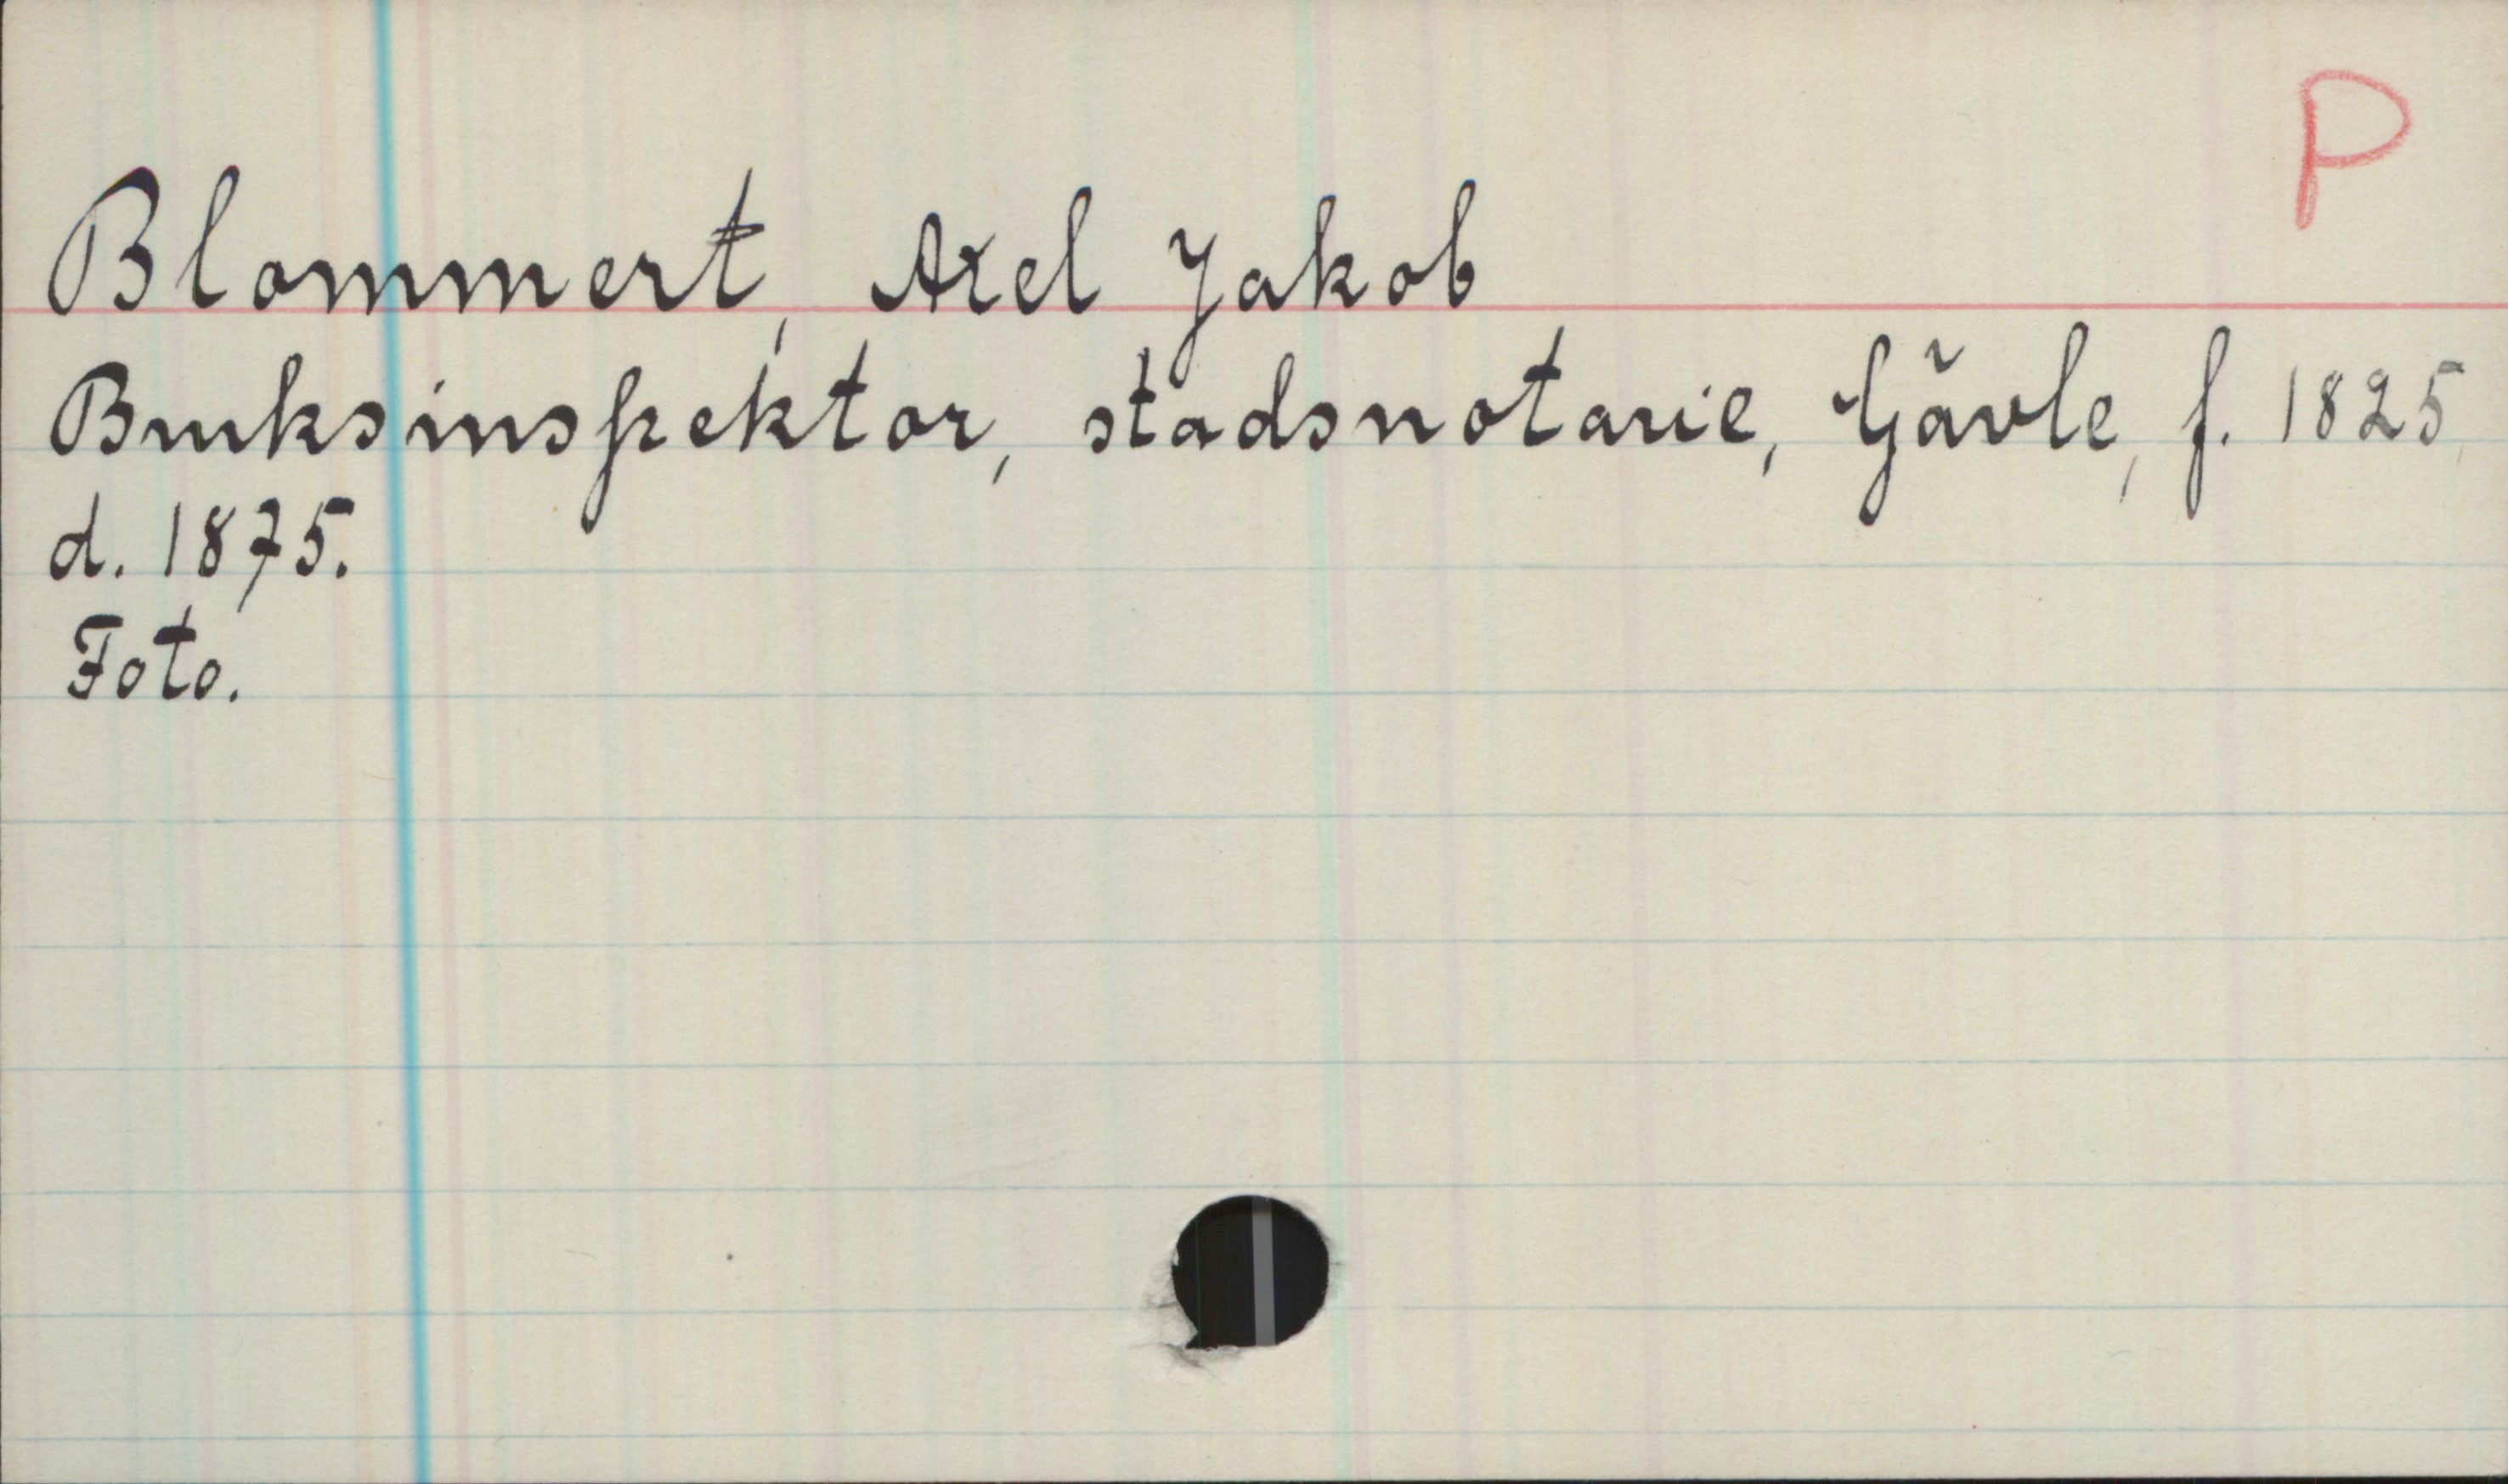 P
Blommert, Axel Jakob
Bruksinspektor, stadsnotarie, Gävle, f. 1825,
d. 1875.
Foto.